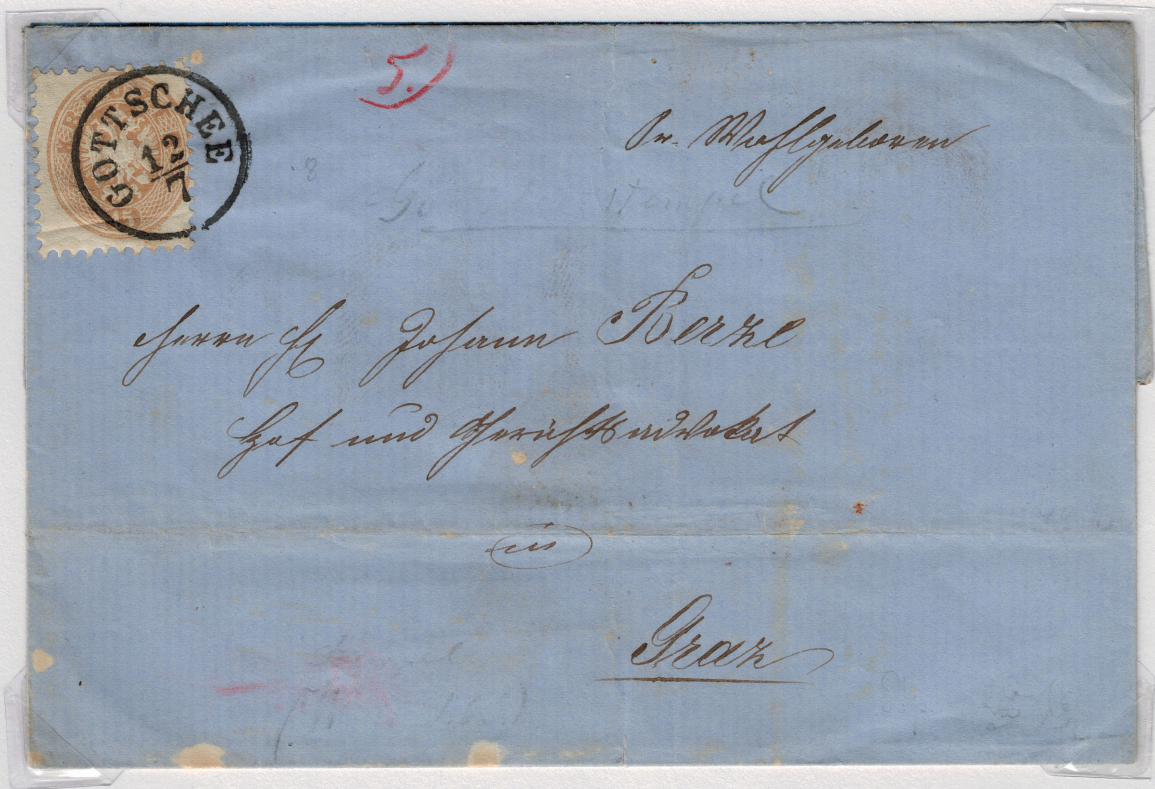 5.)
GOTTSCHEE
12/7
Sr. Wohlgeboren
Herrn H Johann Berze
Hof und Gerichtsadvokat
in
Graz